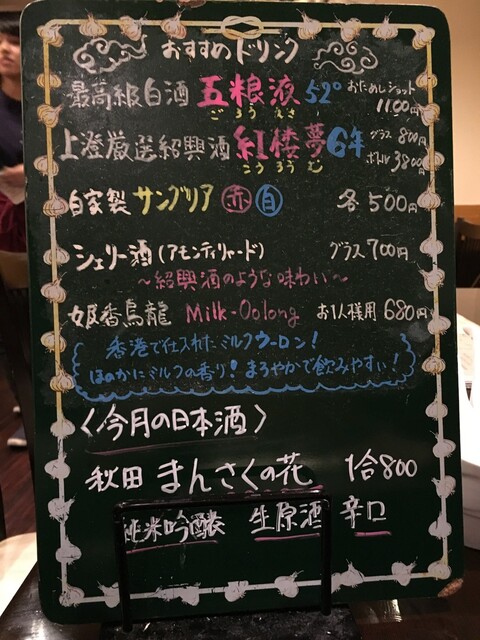 おすすめドリンク
最高級白酒 五粮液 52° おためしショット 1100円
ごろうえき
上澄厳選紹興酒 紅楼夢 6年 グラス 800円 ボトル 3800円
こうろうむ
自家製 サングリア 赤 白 各500円
シェリー酒(アモンティリャード) グラス700円
〜紹興酒のような味わい〜
姫香烏龍 Milk-Oolong お1人様用 680円
香港で仕入れたミルクウーロン!
ほのかにミルクの香り!まろやかで飲みやすい!
〈今月の日本酒〉
秋田 まんさくの花 1合800
純米吟醸 生原酒 辛口